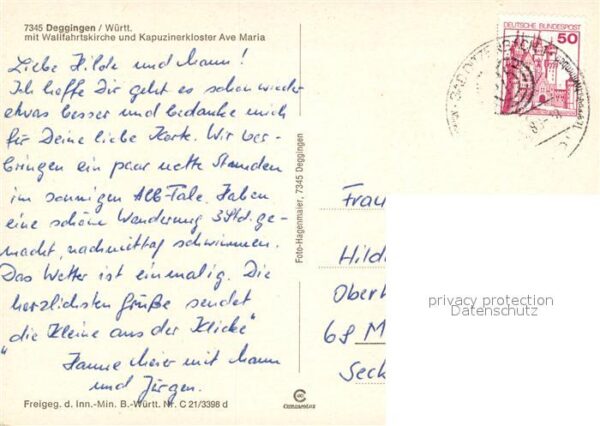 7345 Deggingen / Württ.
mit Wallfahrtskirche und Kapuzinerkloster Ave Maria
Liebe Hilde und Mann!
Ich hoffe Dir geht es schon wieder
etwas besser und bedanke mich
für Deine liebe Karte. Wir ver-
bringen ein paar nette Stunden
im sonnigen Alb-Tale. Haben
eine schöne Wanderung 3 Std. ge-
macht, nachmittag schwimmen.
Das Wetter ist einmalig. Die
herzlichsten Grüße sendet
"die Kleine aus der Klicke"
Hanne Meier mit Mann
und Jürgen.
Freigeg. d. Inn.-Min. B.-Württ. Nr. C 21/3398 d
Foto-Hagenmaier, 7345 Deggingen
DEUTSCHE BUNDESPOST
50
Frau
Hild
Ober
68 M
Seck
privacy protection
Datenschutz